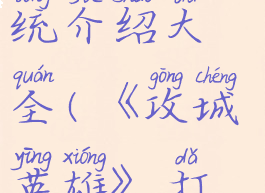 统介绍大
quán gōng chéng
全（《攻城
yīng xióng dǎ
英雄》 打